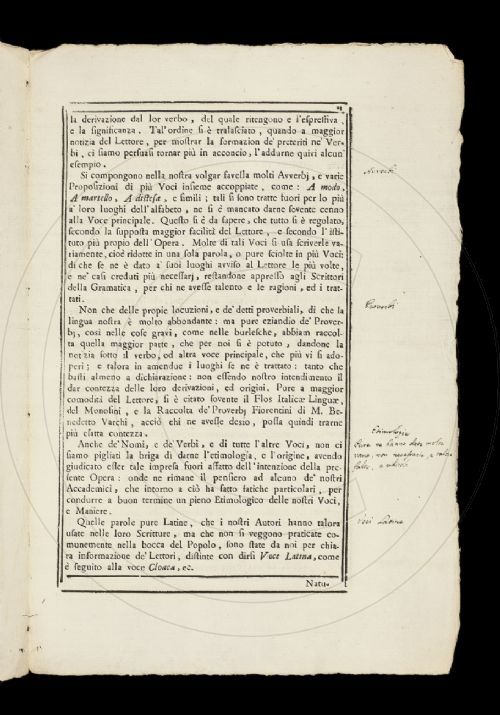 la derivazione dal lor verbo, del quale ritengono e l'espressiva,
e la significanza. Tal'ordine si è tralasciato, quando a maggior
notizia del Lettore, per mostrar la formazion de' preteriti ne' Ver-
bi, ci siamo persuasi tornar più in acconcio, l'addurne quivi alcun'
esempio.
Si compongono nella nostra volgar favella molti Avverbj, e varie
Proposizioni di più Voci insieme accoppiate, come: A modo,
A martello, A distesa, e simili; tali si sono tratte fuori per lo più
a' loro luoghi dell'alfabeto, ne si è mancato darne sovente cenno
alla Voce principale. Questo sì è da sapere, che tutto si è regolato,
secondo la supposta maggior facilità del Lettore, e secondo l'isti-
tuto più proprio dell'Opera. Molte di tali Voci si usa scriverle va-
riamente, cioè ridotte in una sola parola, o pure sciolte in più Voci:
di che se ne è dato a' suoi luoghi avviso al Lettore le più volte,
e ne' casi creduti più necessarj, restandone appresso agli Scrittori
della Gramatica, per chi ne avesse talento e le ragioni, ed i trat-
tati.
Non che delle propie locuzioni, e de' detti proverbiali, di che la
lingua nostra è molto abbondante: ma pure eziandio de' Prover-
bj, così nelle cose gravi, come nelle burlesche, abbiam raccol-
ta quella maggior parte, che per noi si è potuto, dandone la
notizia sotto il verbo, od altra voce principale, che più vi si ado-
peri; e talora in amendue i luoghi se ne è trattato: tanto che
basti almeno a dichiarazione: non essendo nostro intendimento il
dar contezza delle loro derivazioni, ed origini. Pure a maggior
comodità del Lettore, si è citato sovente il Flos Italicæ Linguæ,
del Monosini, e la Raccolta de' Proverbj Fiorentini di M. Be-
nedetto Varchi, acciò chi ne avesse desio, possa quindi trarne
più esatta contezza.
Anche de' Nomi, e de' Verbi, e di tutte l'altre Voci, non ci
siamo pigliati la briga di darne l'etimologia, e l'origine, avendo
giudicato esser tale impresa fuori affatto dell'intenzione della pre-
sente Opera: onde ne rimane il pensiero ad alcuno de' nostri
Accademici, che intorno a ciò ha fatto fatiche particolari, per
condurre a buon termine un pieno Etimologico delle nostri Voci,
e Maniere.
Quelle parole pure Latine, che i nostri Autori hanno talora
usate nelle loro Scritture, ma che non si veggono praticate co-
munemente nella bocca del Popolo, sono state da noi per chia-
ra informazione de' Lettori, distinte con dirsi Voce Latina, come
è seguito alla voce Cloaca, ec.
Natu-
Avverbi
Proverbi
Etimologia
Voci Latine